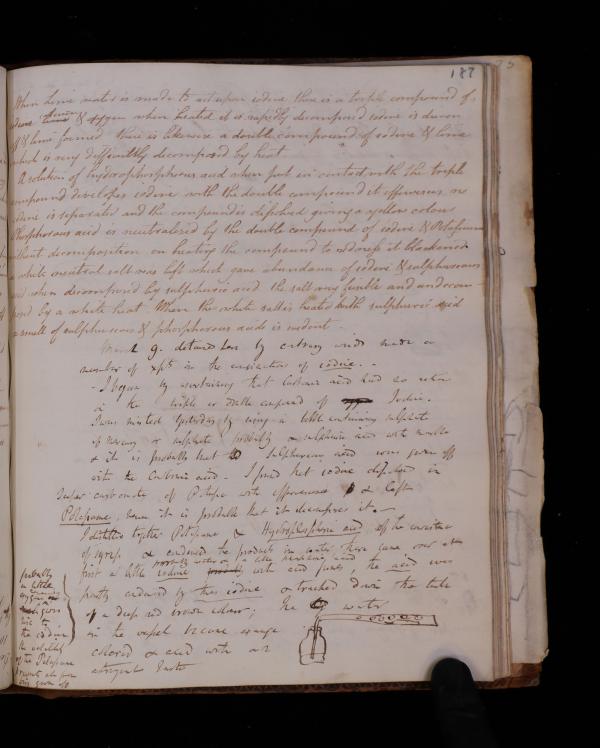 187
When lime water is made to act upon iodine there is a triple compound of
iodine lime & oxygen when heated it is rapidly decomposed iodine is
& lime formed there is likewise a double compound of iodine & lime
which is very difficultly decomposed by heat.
A solution of hydrophosphorous acid when put in contact with the triple
compound developes iodine with the double compound it effervesces no
iodine is separated and the compound is dissolved giving a yellow colour
Phosphorous acid is neutralised by the double compound of iodine & Potassium
without decomposition on heating the compound to redness it blackened
a white neutral salt was left which gave abundance of iodine & sulphureous
acid when decomposed by sulphuric acid the salt very fusible and undecom-
posed by a white heat. When the white salt is heated with sulphuric acid
a smell of sulphureous & phosphorous acids is evident
March 9. detained here by contrary winds made a
number of expts on the iodine. -
- I began by ascertaining that Carbonic acid had no action
on the triple or double compound of Iodine.
I was misled Yesterday by using a bottle containing sulphate
of mercury or sulphite probably & sulphuric acid with
& it is probable that sulphureous acid was given off
with the Carbonic acid. - I found that iodine dissolved in
Super carbonate of Potassa with effervescence & left
Potassane, hence it is probable that it decomposes it. -
I distilled together Potassane & Hydrophosphoric acid of the consistence
of syrup & condensed the products in water there came over at
possibly water or a little
first a little iodine with acid fumes, the acid was
partly coloured by this iodine & trickled down the tube
of a deep red brown colour; the water
in the vessel became orange
colored & acid with an
astringent taste
probably
a little
oxygene
given
to
the iodine
of the Potassane